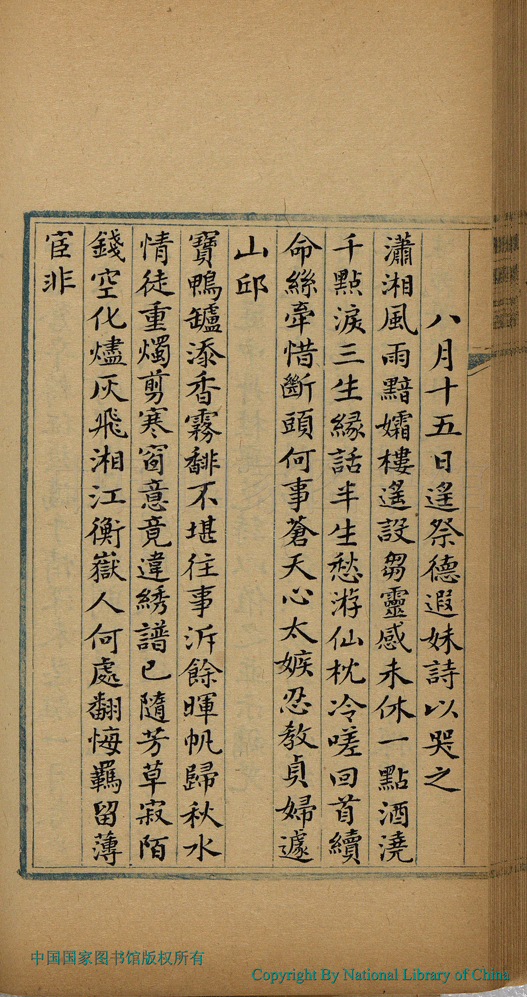 八月十五日遙祭德遐妹詩以哭之
瀟湘風雨黯孀樓遙設芻靈感未休一點酒澆
千點淚三生緣話半生愁游仙枕冷嗟回首續
命絲牽惜斷頭何事蒼天心太嫉忍教貞婦遽
山邱
寶鴨罏添香霧馡不堪往事泝餘暉帆歸秋水
情徒重燭剪寒窗意竟違綉譜已隨芳草寂陌
錢空化燼灰飛湘江衡嶽人何處翻悔羈留薄
宦非
中国国家图书馆版权所有
Copyright By National Library of China